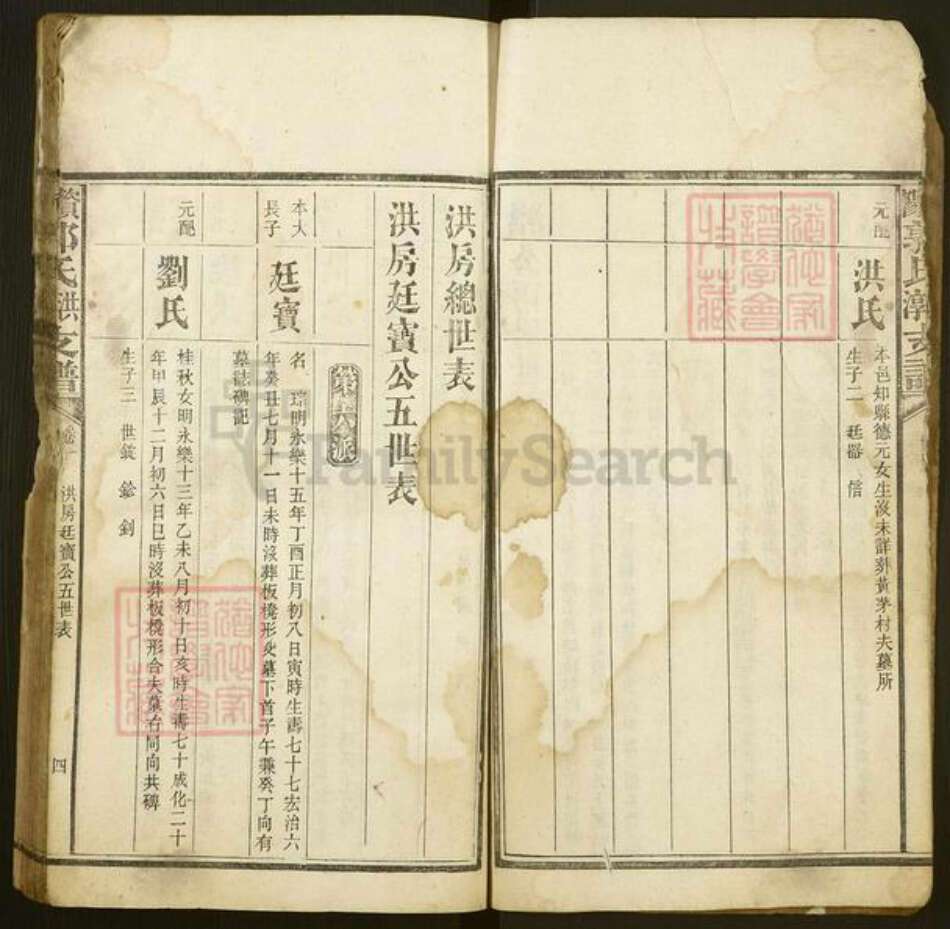 元配
洪氏
本邑知縣德元女生沒未詳葬黃茅村夫墓所
生子二 廷器 信
洪房總世表
洪房廷寶公五世表
第六派
本大
長子
廷寶
名 琮明永樂十五年丁酉正月初八日寅時生壽七十七宏治六
年癸丑七月十一日未時沒葬板橈形父墓下首子午兼癸丁向有
墓誌碑記
元配
劉氏
桂秋女明永樂十三年乙未八月初十日亥時生壽七十成化二十
年甲辰十二月初六日巳時沒葬板橈形合夫墓右同向共碑
生子三 世 釗
郭氏洪支譜
洪房廷寶公五世表
四
FamilySearch